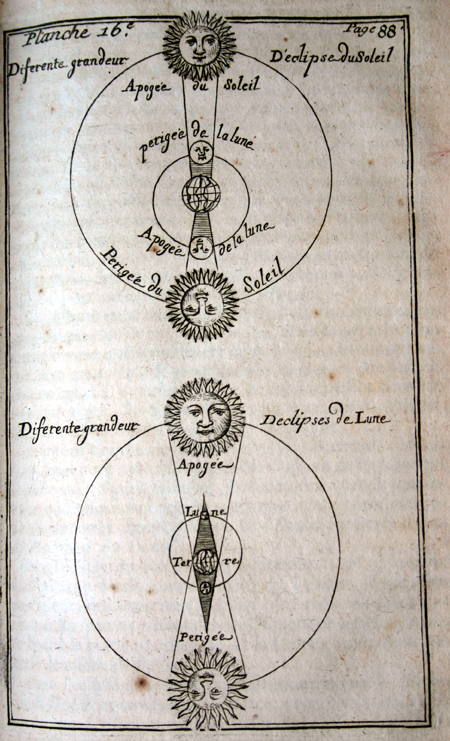 Planche 16.e
Page 88
Diferente grandeur
D'eclipse du Soleil
Apogée du Soleil
perigée de la lune
Apogée de la lune
Perigée du Soleil
Diferente grandeur
Declipses de Lune
Apogée
Lune
Terre
Perigée